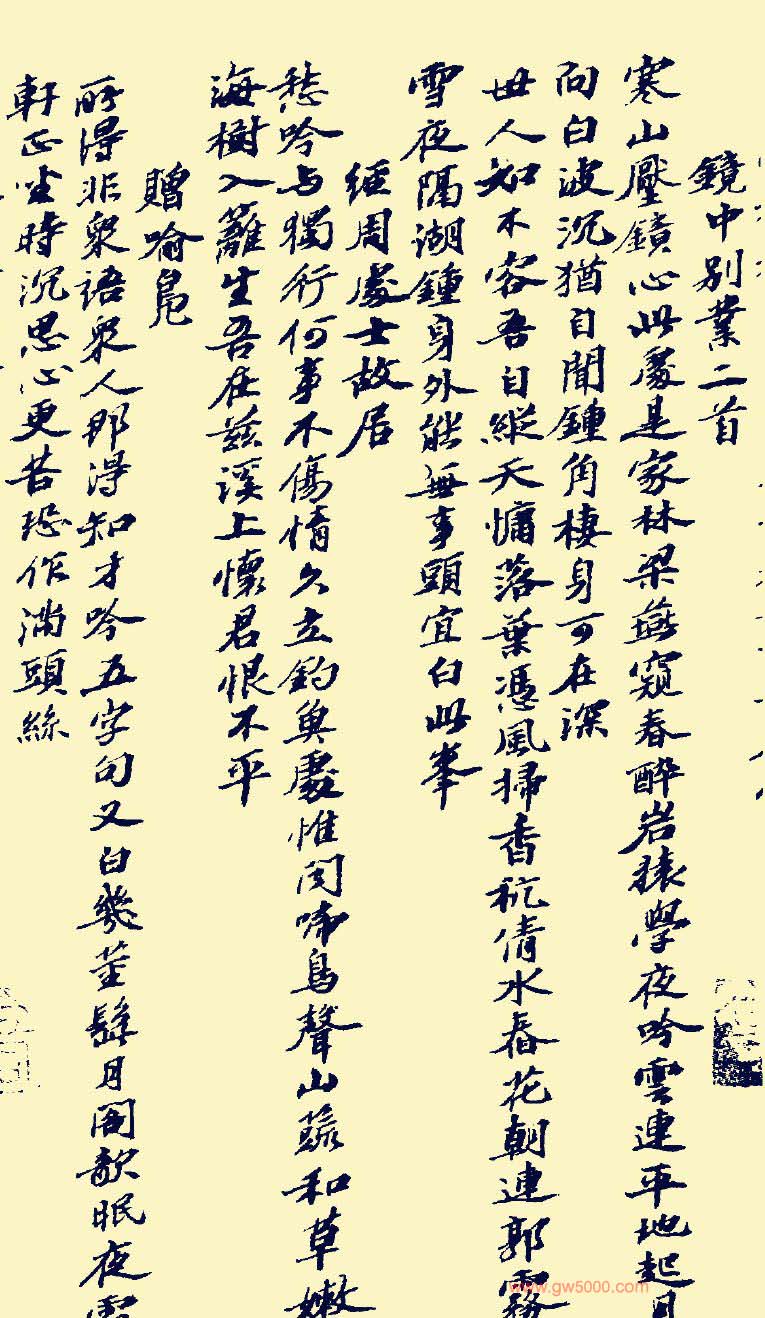 鏡中別業二首
寒山壓鏡心此處是家林梁燕窺春醉岩猿學夜吟雲連平地起月
向白波沉猶自聞鍾角棲身可在深
世人如不容吾自縱天慵落葉憑風掃香秔倩水舂花朝連郭霧
雪夜隔湖鍾身外能無事頭宜白此峯
經周處士故居
愁吟与獨行何事不傷情久立釣魚處惟聞啼鳥聲山蔬和草嫩
海樹入籬生吾在茲溪上懷君恨不平
贈喻鳧
所得非衆語衆人那得知才吟五字句又白幾莖髭月閣欹眠夜雪
軒正坐時沉思心更苦恐作滿頭絲
www.gw5000.com